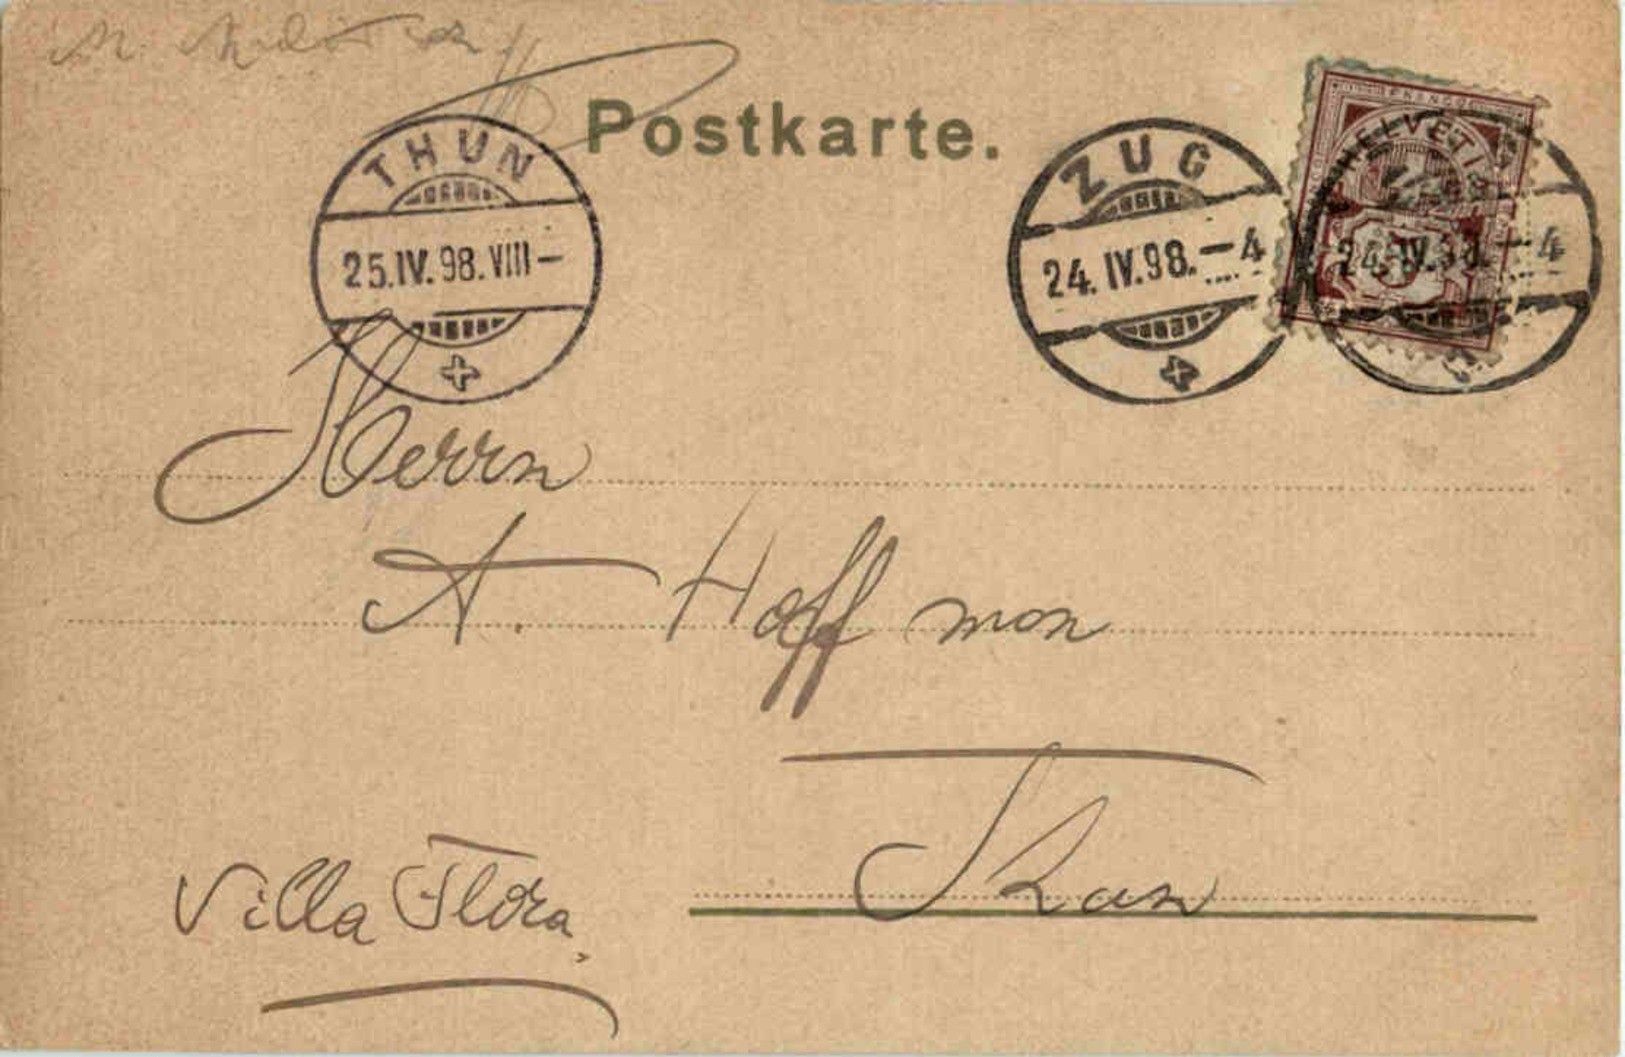 Postkarte.
THUN
25.IV.98.VIII–
ZUG
24.IV.98.–4
HELVETIA
24.IV.98.–4
Herrn
A. Hoffmon
Thun
Villa Flora,